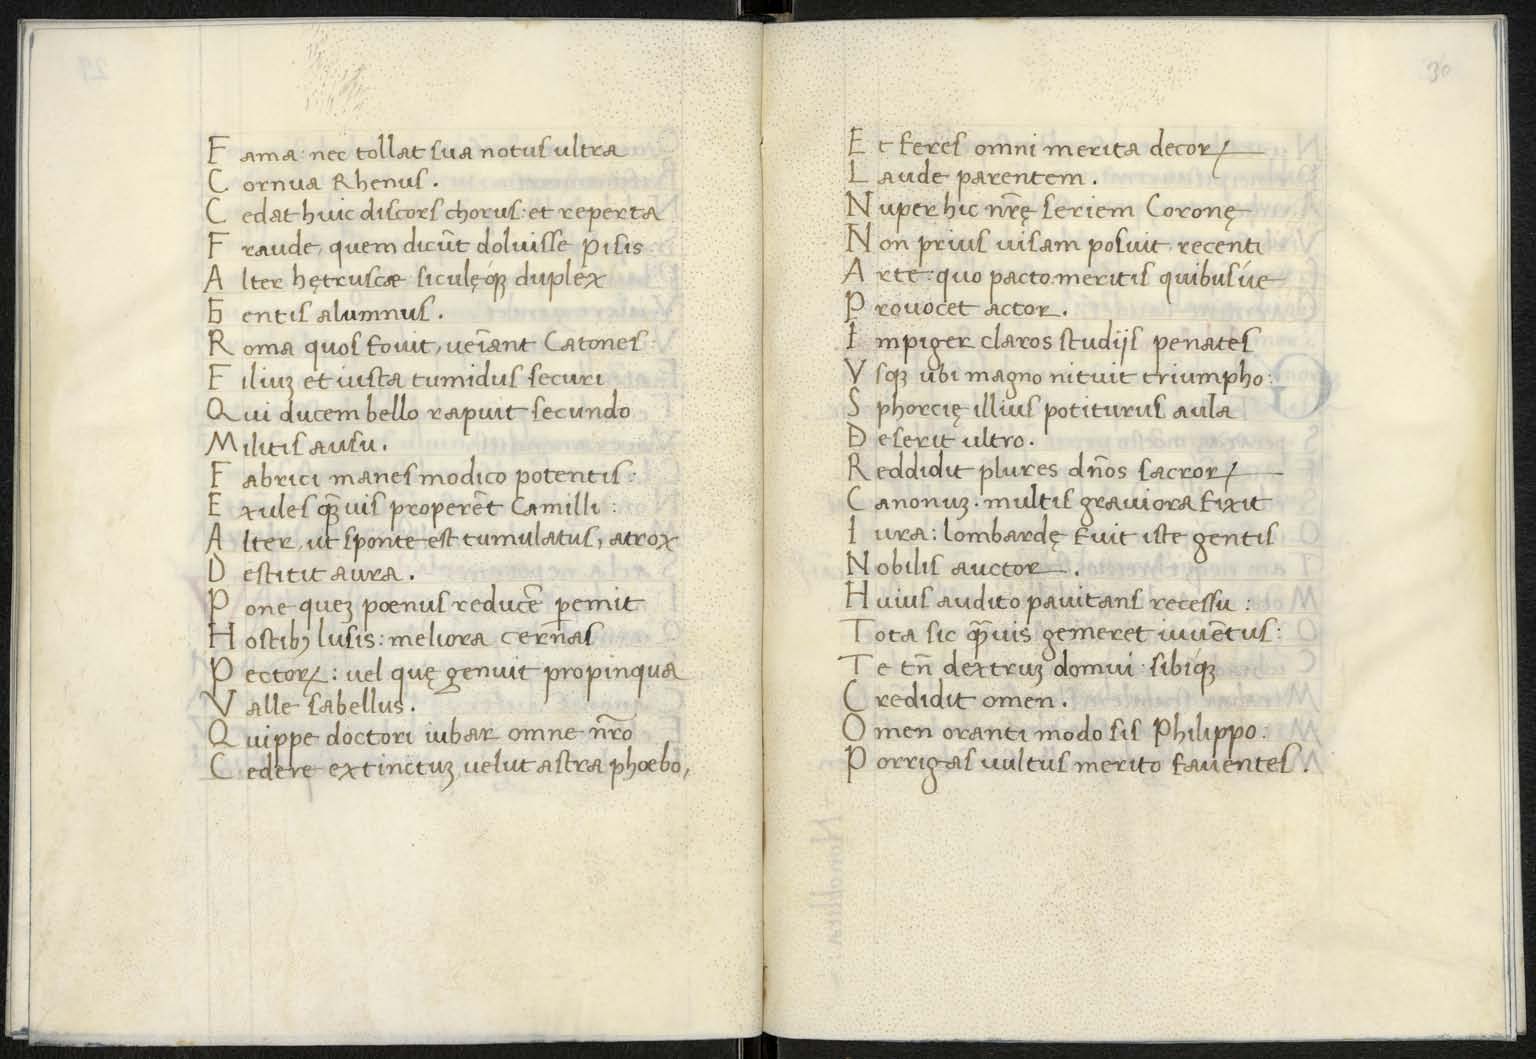 Fama: nec tollat sua notus ultra
Cornua Rhenus.
Cedat huic discors chorus: et reperta
Fraude, quem dicūt doluisse Pisis
Alter hętruscæ siculęqꝫ duplex
Gentis alumnus.
Roma quos fouit, ueīant Catones:
Filiuꝫ et iusta tumidus securi
Qui ducem bello rapuit secundo
Militis ausu.
Fabrici manes modico potentis:
Exules qꝫ̄uis properēt Camilli:
Alter, ut sponte est tumulatus, atrox
Destitit aura.
Pone queꝫ pœnus reducē ꝑemit
Hostibꝫ lusis: meliora cern̄as
Pectoꝝ: uel quę genuit propinqua
Valle sabellus.
Quippe doctori iubar omne nr̄o
Cedere extinctuꝫ, uelut astra phœbo,
30
Et feres omni merita decoꝝ
Laude parentem.
Nuper hic nr̄ę seriem Coronę
Non prius uisam posuit, recenti
Arte: quo pacto: meritis quibusúe
Prouocet actor.
Impiger claros studijs penates
Vsqꝫ ubi magno nituit triumpho:
Sphorcię illius potiturus aula
Deserit ultro.
Reddidit plures dn̄os sacroꝝ
Canonuꝫ. multis grauiora fixit
Iura: lombardę fuit iste gentis
Nobilis auctor.
Huius audito pauitans recessu:
Tota sic qꝫ̄uis gemeret iuuētus:
Te tn̄ dextruꝫ domui: sibíqꝫ
Credidit omen.
Omen oranti modo sis Philippo:
Porrigas uultus merito fauentes.